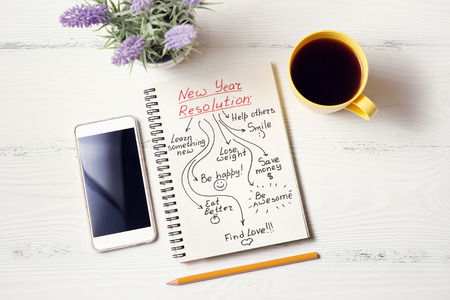 New Year
Resolution:
Help others
Smile
Learn
something
new
Lose
weight
Save
money
$
Be happy!
Be
Awesome
Eat
Better
Find Love!!!